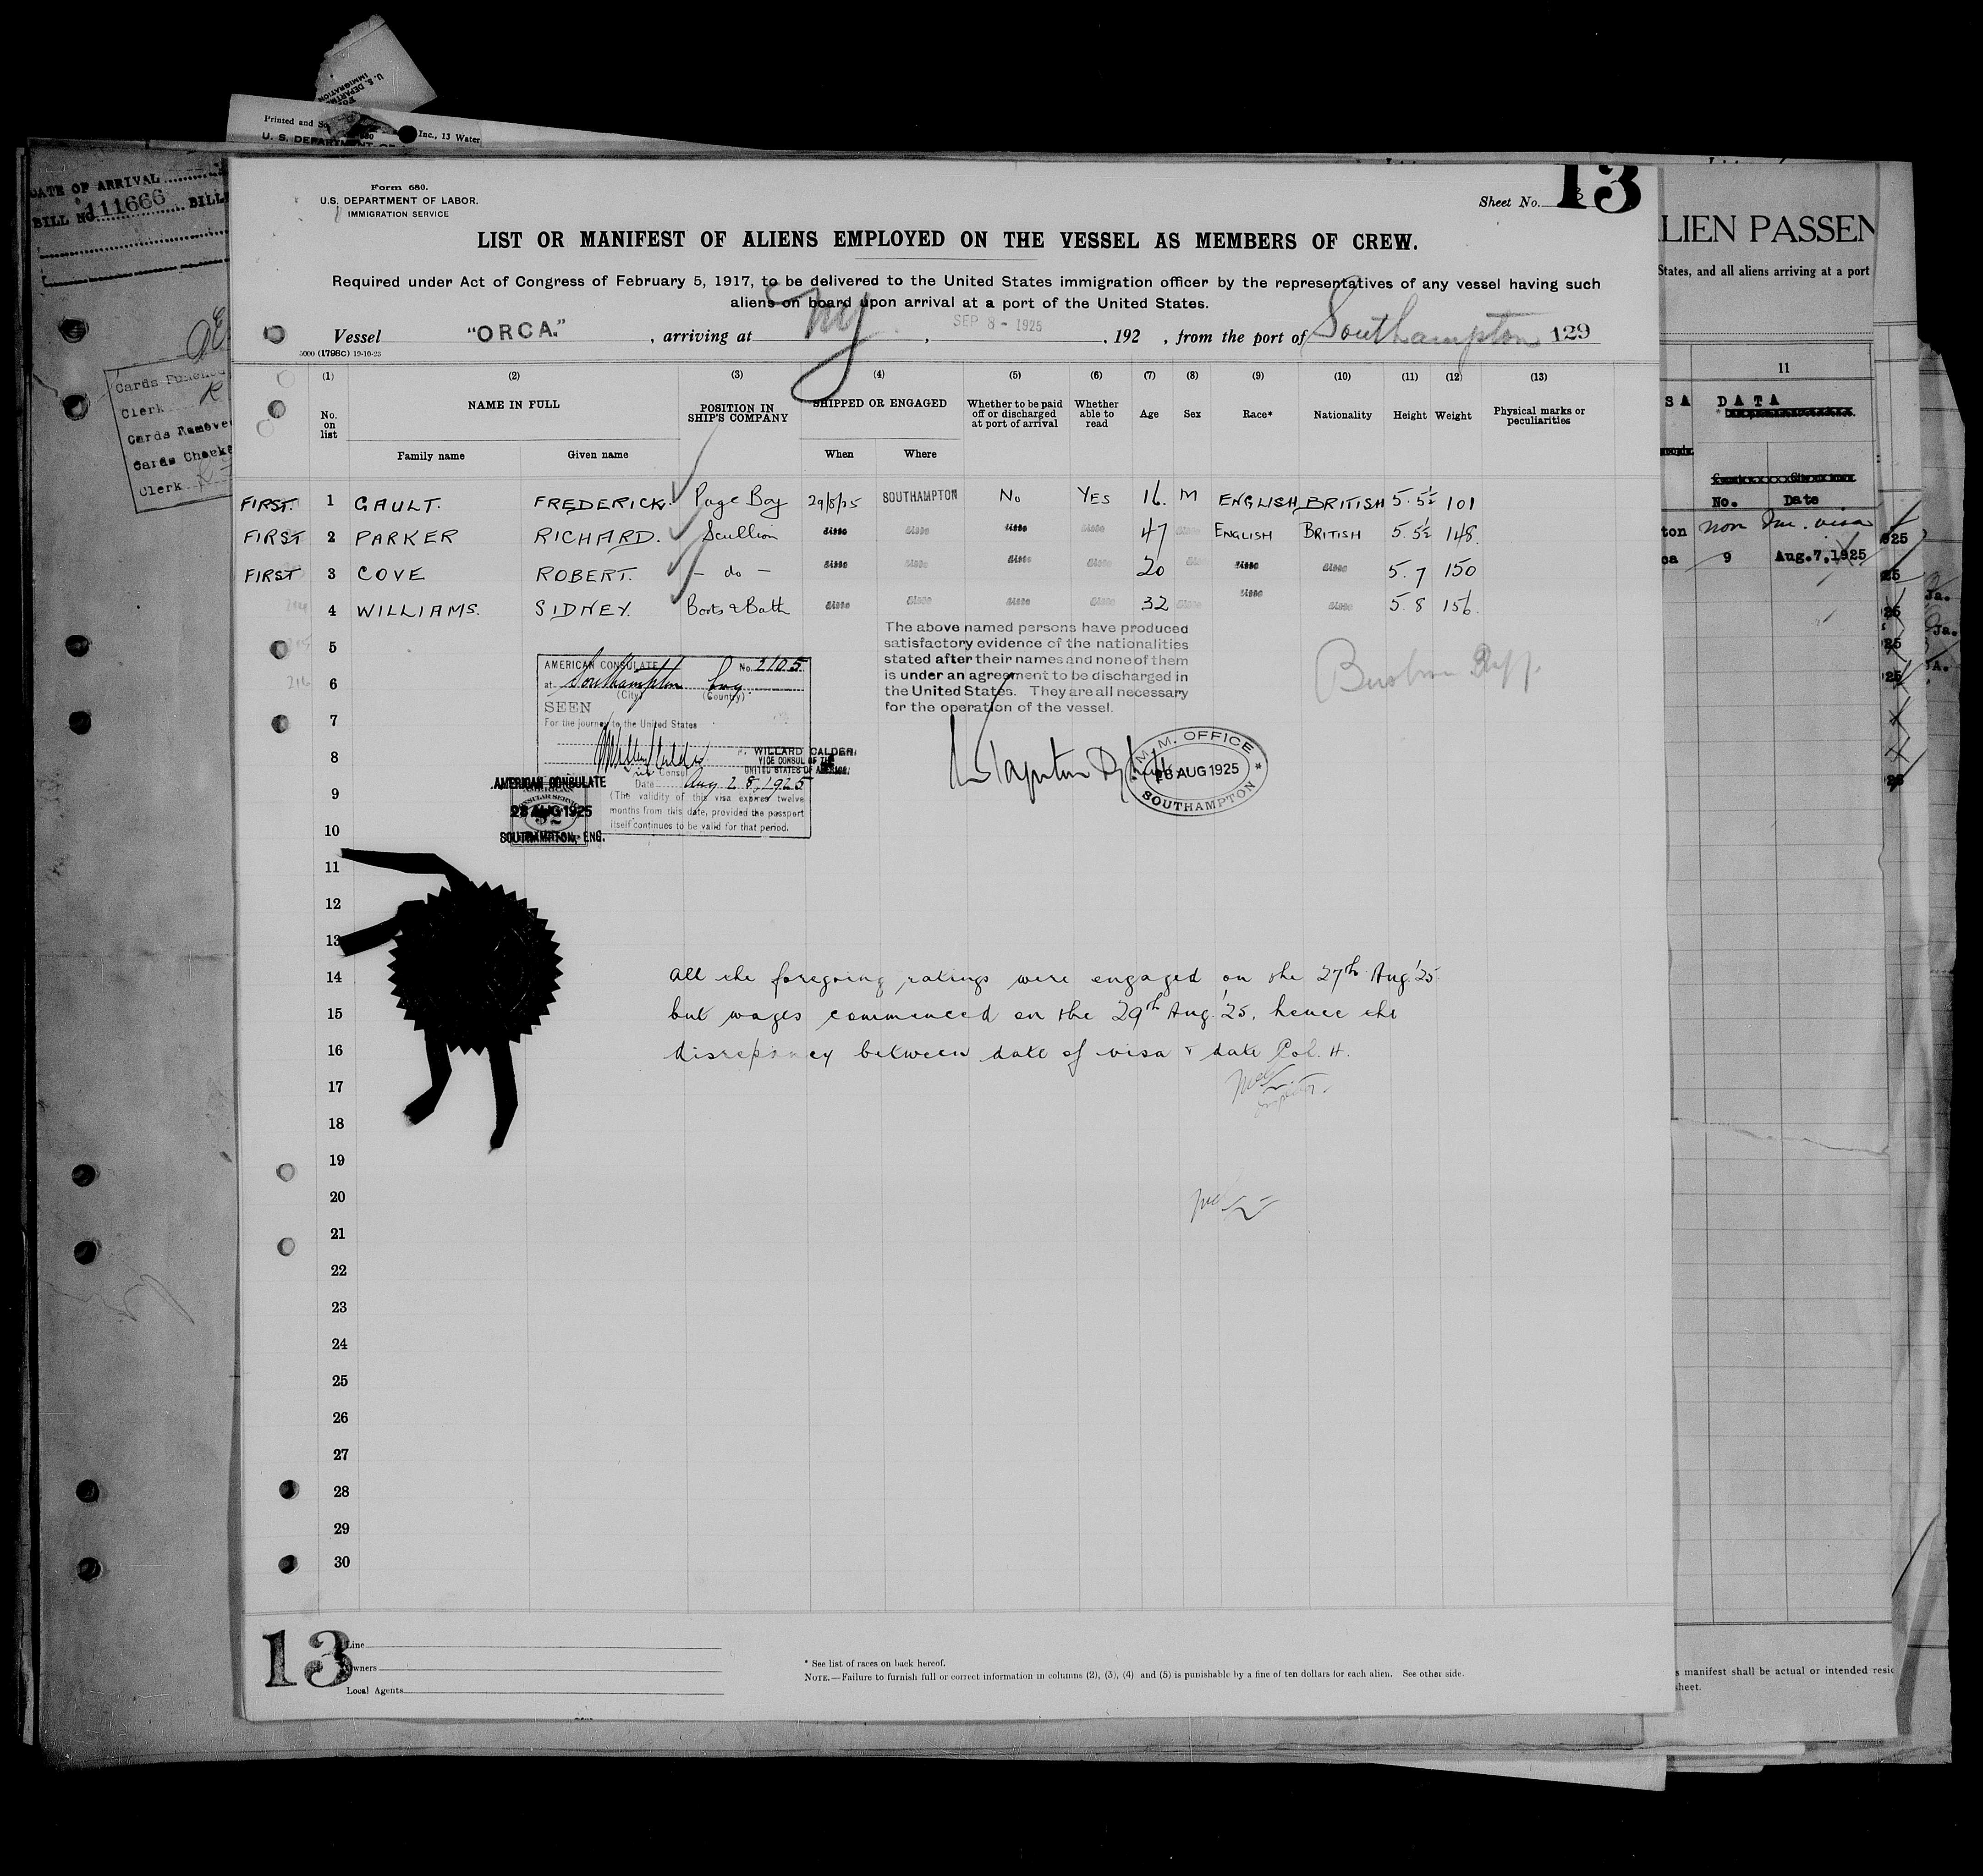 U. S. DEPARTMENT
IMMIGRATION
Printed and So
Inc., 13 Water
U. S. DEPARTMENT OF
DATE OF ARRIVAL
BILL No. 111666 BILL
Cards Punched
Clerk R
Cards Removed
Cards Checke
Clerk
Form 680.
U.S. DEPARTMENT OF LABOR.
IMMIGRATION SERVICE
Sheet No. 13
LIST OR MANIFEST OF ALIENS EMPLOYED ON THE VESSEL AS MEMBERS OF CREW.
Required under Act of Congress of February 5, 1917, to be delivered to the United States immigration officer by the representatives of any vessel having such
aliens on board upon arrival at a port of the United States.
Vessel "ORCA." , arriving at NY , SEP 8 - 1925 , 192 , from the port of Southampton 129
5000 (1798C) 19-10-23
(1) (2) (3) (4) (5) (6) (7) (8) (9) (10) (11) (12) (13)
No. on list
NAME IN FULL
Family name Given name
POSITION IN SHIP'S COMPANY
SHIPPED OR ENGAGED
When Where
Whether to be paid off or discharged at port of arrival
Whether able to read
Age Sex Race* Nationality Height Weight
Physical marks or peculiarities
FIRST. 1 GAULT. FREDERICK. Page Boy 29/8/25 SOUTHAMPTON No YES 16. M ENGLISH BRITISH 5.5½ 101
FIRST 2 PARKER RICHARD. Scullion ditto ditto ditto ditto 47 ditto ENGLISH BRITISH 5.5½ 148.
FIRST 3 COVE ROBERT. - do - ditto ditto ditto ditto 20 ditto ditto ditto 5.7 150
4 WILLIAMS. SIDNEY. Boots & Bath ditto ditto ditto ditto 32 ditto ditto ditto 5.8 156.
The above named persons have produced
satisfactory evidence of the nationalities
stated after their names and none of them
is under an agreement to be discharged in
the United States. They are all necessary
for the operation of the vessel.
AMERICAN CONSULATE No. 2105
at Southampton Eng
(City) (Country)
SEEN
For the journey to the United States
F. WILLARD CALDER
VICE CONSUL OF THE
UNITED STATES OF AMERICA
Vice Consul
Date Aug 28, 1925
(The validity of this visa expires twelve
months from this date, provided the passport
itself continues to be valid for that period.
AMERICAN CONSULATE
28 AUG 1925
SOUTHAMPTON, ENG.
M. M. OFFICE
28 AUG 1925
SOUTHAMPTON
5
6
7
8
9
10
11
12
13
14
15
16
17
18
19
20
21
22
23
24
25
26
27
28
29
30
All the foregoing ratings were engaged on the 27th Aug. '25
but wages commenced on the 29th Aug. '25, hence the
discrepancy between date of visa & date Col. 4.
13
Line
Owners
Local Agents
* See list of races on back hereof.
NOTE.—Failure to furnish full or correct information in columns (2), (3), (4) and (5) is punishable by a fine of ten dollars for each alien. See other side.
LIEN PASSEN
States, and all aliens arriving at a port
11
SA DATA
No. Date
ton non Im. visa
ca 9 Aug.7,1925
s manifest shall be actual or intended resid
sheet.